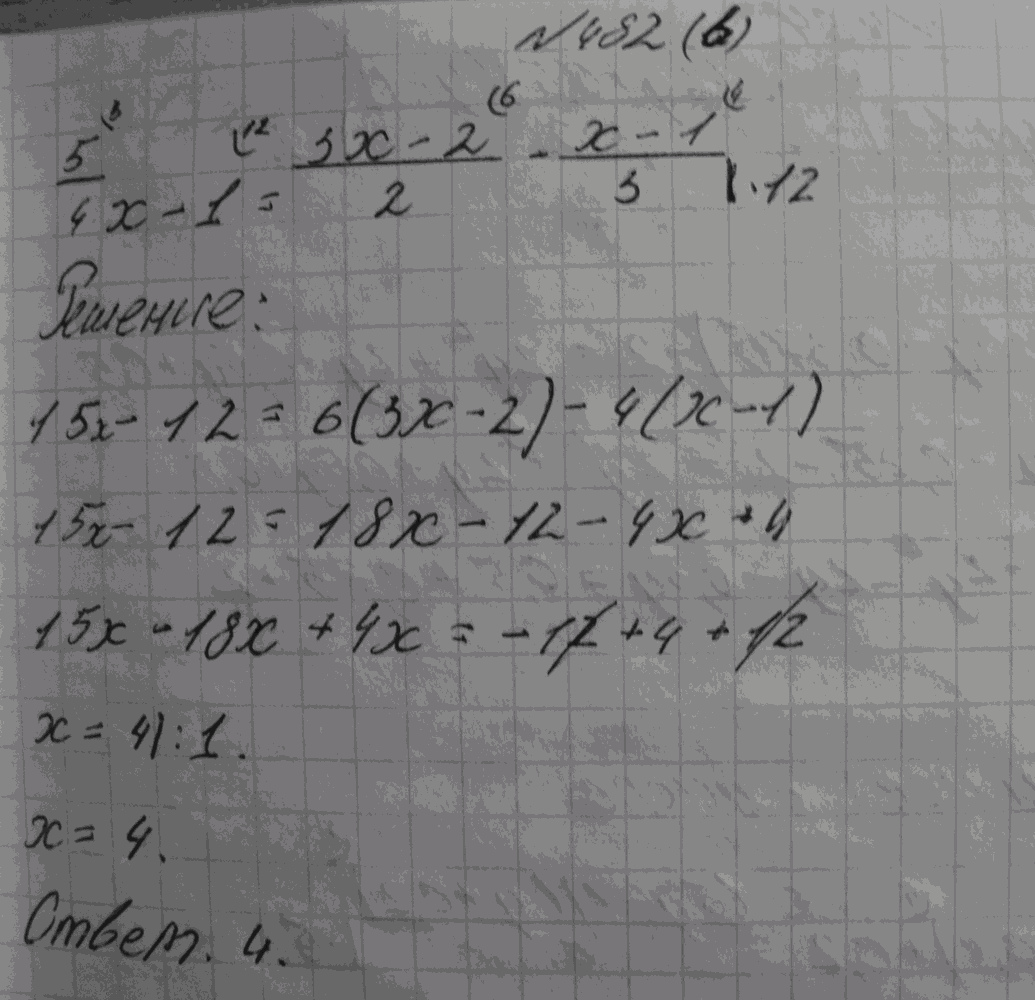 №482 (в)
5/4 x - 1 = (3x - 2)/2 - (x - 1)/3 | · 12
Решение:
15x - 12 = 6(3x - 2) - 4(x - 1)
15x - 12 = 18x - 12 - 4x + 4
15x - 18x + 4x = -12 + 4 + 12
x = 4| : 1.
x = 4.
Ответ. 4.